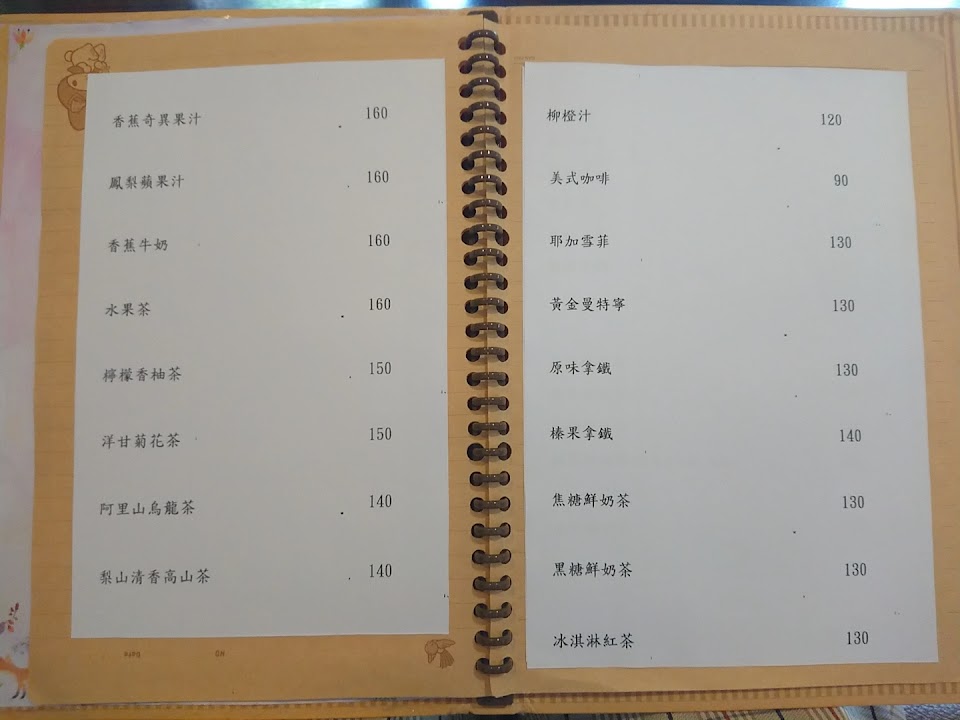 香蕉奇異果汁 160
鳳梨蘋果汁 160
香蕉牛奶 160
水果茶 160
檸檬香柚茶 150
洋甘菊花茶 150
阿里山烏龍茶 140
梨山清香高山茶 140
柳橙汁 120
美式咖啡 90
耶加雪菲 130
黃金曼特寧 130
原味拿鐵 130
榛果拿鐵 140
焦糖鮮奶茶 130
黑糖鮮奶茶 130
冰淇淋紅茶 130
Date
NO